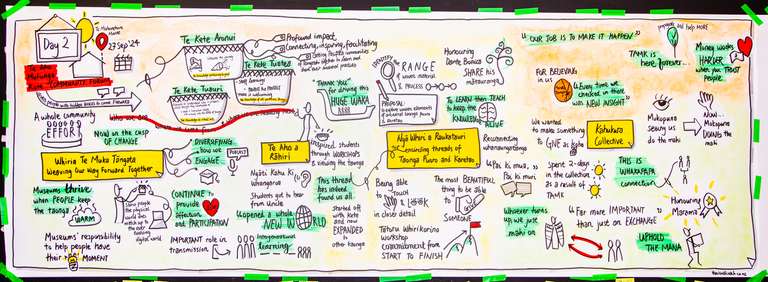 Day 2
23 Sep '24
Te Aho
Mutunga
Kore
COMMUNITY FORUM
A whole community
EFFORT
Now on the CUSP
of CHANGE
Whiria Te Muka Tāngata
Weaving Our Way Forward Together
Museums thrive
when PEOPLE keep
the taonga
WARM
Museums' responsibility
to help people have
their MOMENT
CONTINUE to
provide
affection
and PARTICIPATION
IMPORTANT role in
transmission
DIVERSIFYING
how we
ENGAGE
PODCAST
Te Kete Aronui
Te Kete Tuatea
Te Kete Tuauri
Profound impact,
Connecting, inspiring, facilitating
"THANK YOU"
for driving this
HUGE WAKA
Te Aho a
Rāhiri
Inspired students
through WORKSHOPS
& viewing the taonga
Ngāti Kahu ki
Whangaroa
Students got to hear
from Unitec
"Opened a whole
NEW WORLD
Intergenerational
learning
This thread
has indeed
found us all
Started off
with Kete and
now EXPANDED
to other
taonga
IDENTIFY
RANGE
of weave material
& PROCESS
PROPOSAL:
Honouring
Dante Bonica
SHARE his
mātauranga
TO LEARN then TEACH
to keep the
KNOWLEDGE
ALIVE
Ngā Whiri a Raukatauri
encircling threads of
Taonga Puoro and Karetao
Reconnecting
whanaungatanga
Being able
to touch
& look
in closer detail
The most BEAUTIFUL
thing to be able
to
SOMEONE
Tātoru Whirikorino
workshop
commitment from
START TO FINISH
"OUR JOB IS TO MAKE IT HAPPEN"
FOR BELIEVING
in us
"Every time we
checked in there
was NEW INSIGHT"
We wanted
to make something
to
GIVE as koha
Kahukura
Collective
"Pai ki mua,
Pai ki muri
Spent 2-days
in the collection
as a result of
TAMK
Whoever turns
up, we just
mahi on
"Far more IMPORTANT
than just an EXCHANGE
and help MORE
TAMK is
here forever...
Money works
HARDER
when you TRUST
people
Mokopuna
seeing us
do the
mahi
Now...
Mokopuna
DOING the
mahi
THIS IS
WHAKAPAPA
connection
Honouring
Marama
UPHOLD
THE MANA